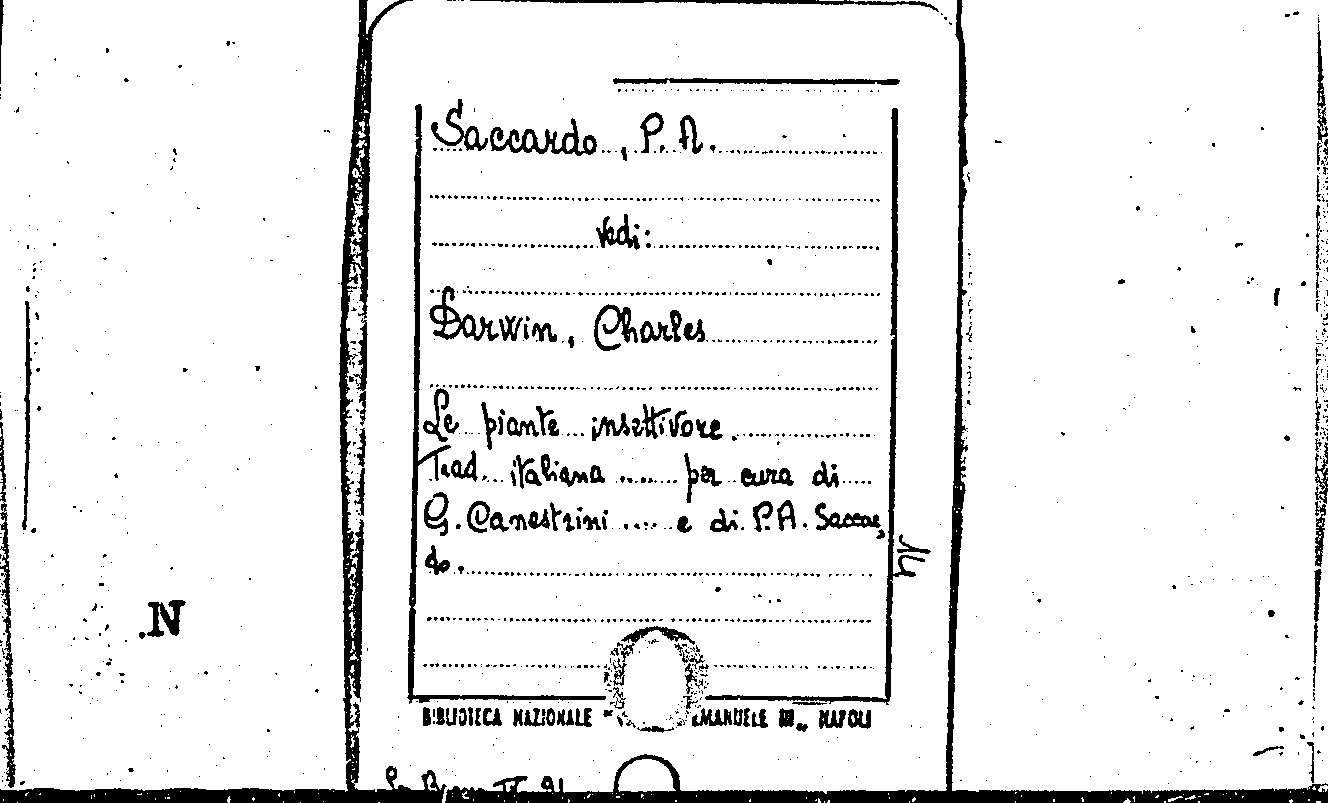 Saccardo, P. A.
Vedi:
Darwin, Charles
Le piante insettivore.
Trad. italiana ..... per cura di
G. Canestrini .... e di P. A. Saccar,
do.
.N
BIBLIOTECA NAZIONALE " EMANUELE III„ NAPOLI